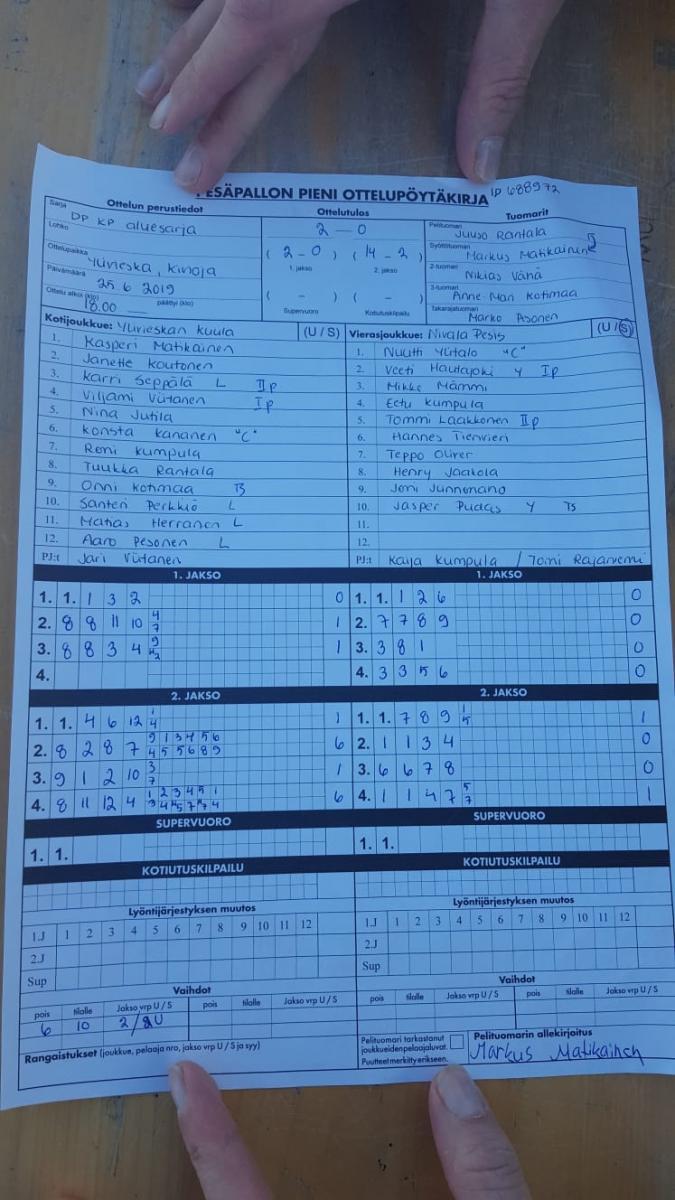 PESÄPALLON PIENI OTTELUPÖYTÄKIRJA ID 688972
Ottelun perustiedot
Sarja
DP KP aluesarja
Lohko
Ottelupaikka
Ylivieska, Kinoja
Päivämäärä
25 6 2019
Ottelu alkoi (klo) päättyi (klo)
18.00
Ottelutulos
2 – 0
( 2 – 0 ) ( 14 – 2 )
1. jakso 2. jakso
( – ) ( – )
Supervuoro Kotiutuskilpailu
Tuomarit
Pelituomari
Juuso Rantala
Syöttötuomari
Markus Matikainen
2-tuomari
Niklas Vänä
3-tuomari
Anne-Mari Kotimaa
Takarajatuomari
Marko Pesonen
Kotijoukkue: Ylivieskan Kuula (U / S)
1. Kasperi Matikainen
2. Janette Koutonen
3. Karri Seppälä L IIp
4. Viljami Viitanen Ip
5. Nina Jutila
6. Konsta Kananen "C"
7. Roni Kumpula
8. Tuukka Rantala
9. Onni Kotimaa
10. Santeri Perkkiö L
11. Matias Herranen L
12. Aaro Pesonen L
PJ:t Jari Viitanen
Vierasjoukkue: Nivala Pesis (U / S)
1. Nuutti Ylitalo "C"
2. Veeti Hautajoki Y Ip
3. Mikke Mämmi
4. Eetu Kumpula
5. Tommi Laakkonen IIp
6. Hannes Tienvieri
7. Teppo Oliver
8. Henry Jaakola
9. Joni Junnonaho
10. Jasper Pudas Y
11.
12.
PJ:t Kaija Kumpula / Tomi Rajaniemi
1. JAKSO
1. 1. 1 3 2 0
2. 8 8 11 10 4 7 1
3. 8 8 3 4 9 1
4.
1. JAKSO
1. 1. 1 2 6 0
2. 7 7 8 9 0
3. 3 8 1 0
4. 3 3 5 6 0
2. JAKSO
1. 1. 4 6 12 1 4 1
2. 8 2 8 7 9 1 3 4 5 6 6
4 5 5 6 8 9
3. 9 1 2 10 3 7 1
4. 8 11 12 4 1 2 3 4 5 1 6
2. JAKSO
1. 1. 7 8 9 1 5 1
2. 1 1 3 4 0
3. 6 6 7 8 0
4. 1 1 4 7 5 7 1
SUPERVUORO
1. 1.
SUPERVUORO
1. 1.
KOTIUTUSKILPAILU
KOTIUTUSKILPAILU
Lyöntijärjestyksen muutos
1.J 1 2 3 4 5 6 7 8 9 10 11 12
2.J
Sup
Lyöntijärjestyksen muutos
1.J 1 2 3 4 5 6 7 8 9 10 11 12
2.J
Sup
Vaihdot
pois tilalle Jakso vrp U / S pois tilalle Jakso vrp U / S
6 10
Vaihdot
pois tilalle Jakso vrp U / S pois tilalle Jakso vrp U / S
Rangaistukset (joukkue, pelaaja nro, jakso vrp U / S ja syy)
Pelituomari tarkastanut
joukkueiden pelaajaluvat.
Puutteet merkitty erikseen.
Pelituomarin allekirjoitus
Markus Matikainen